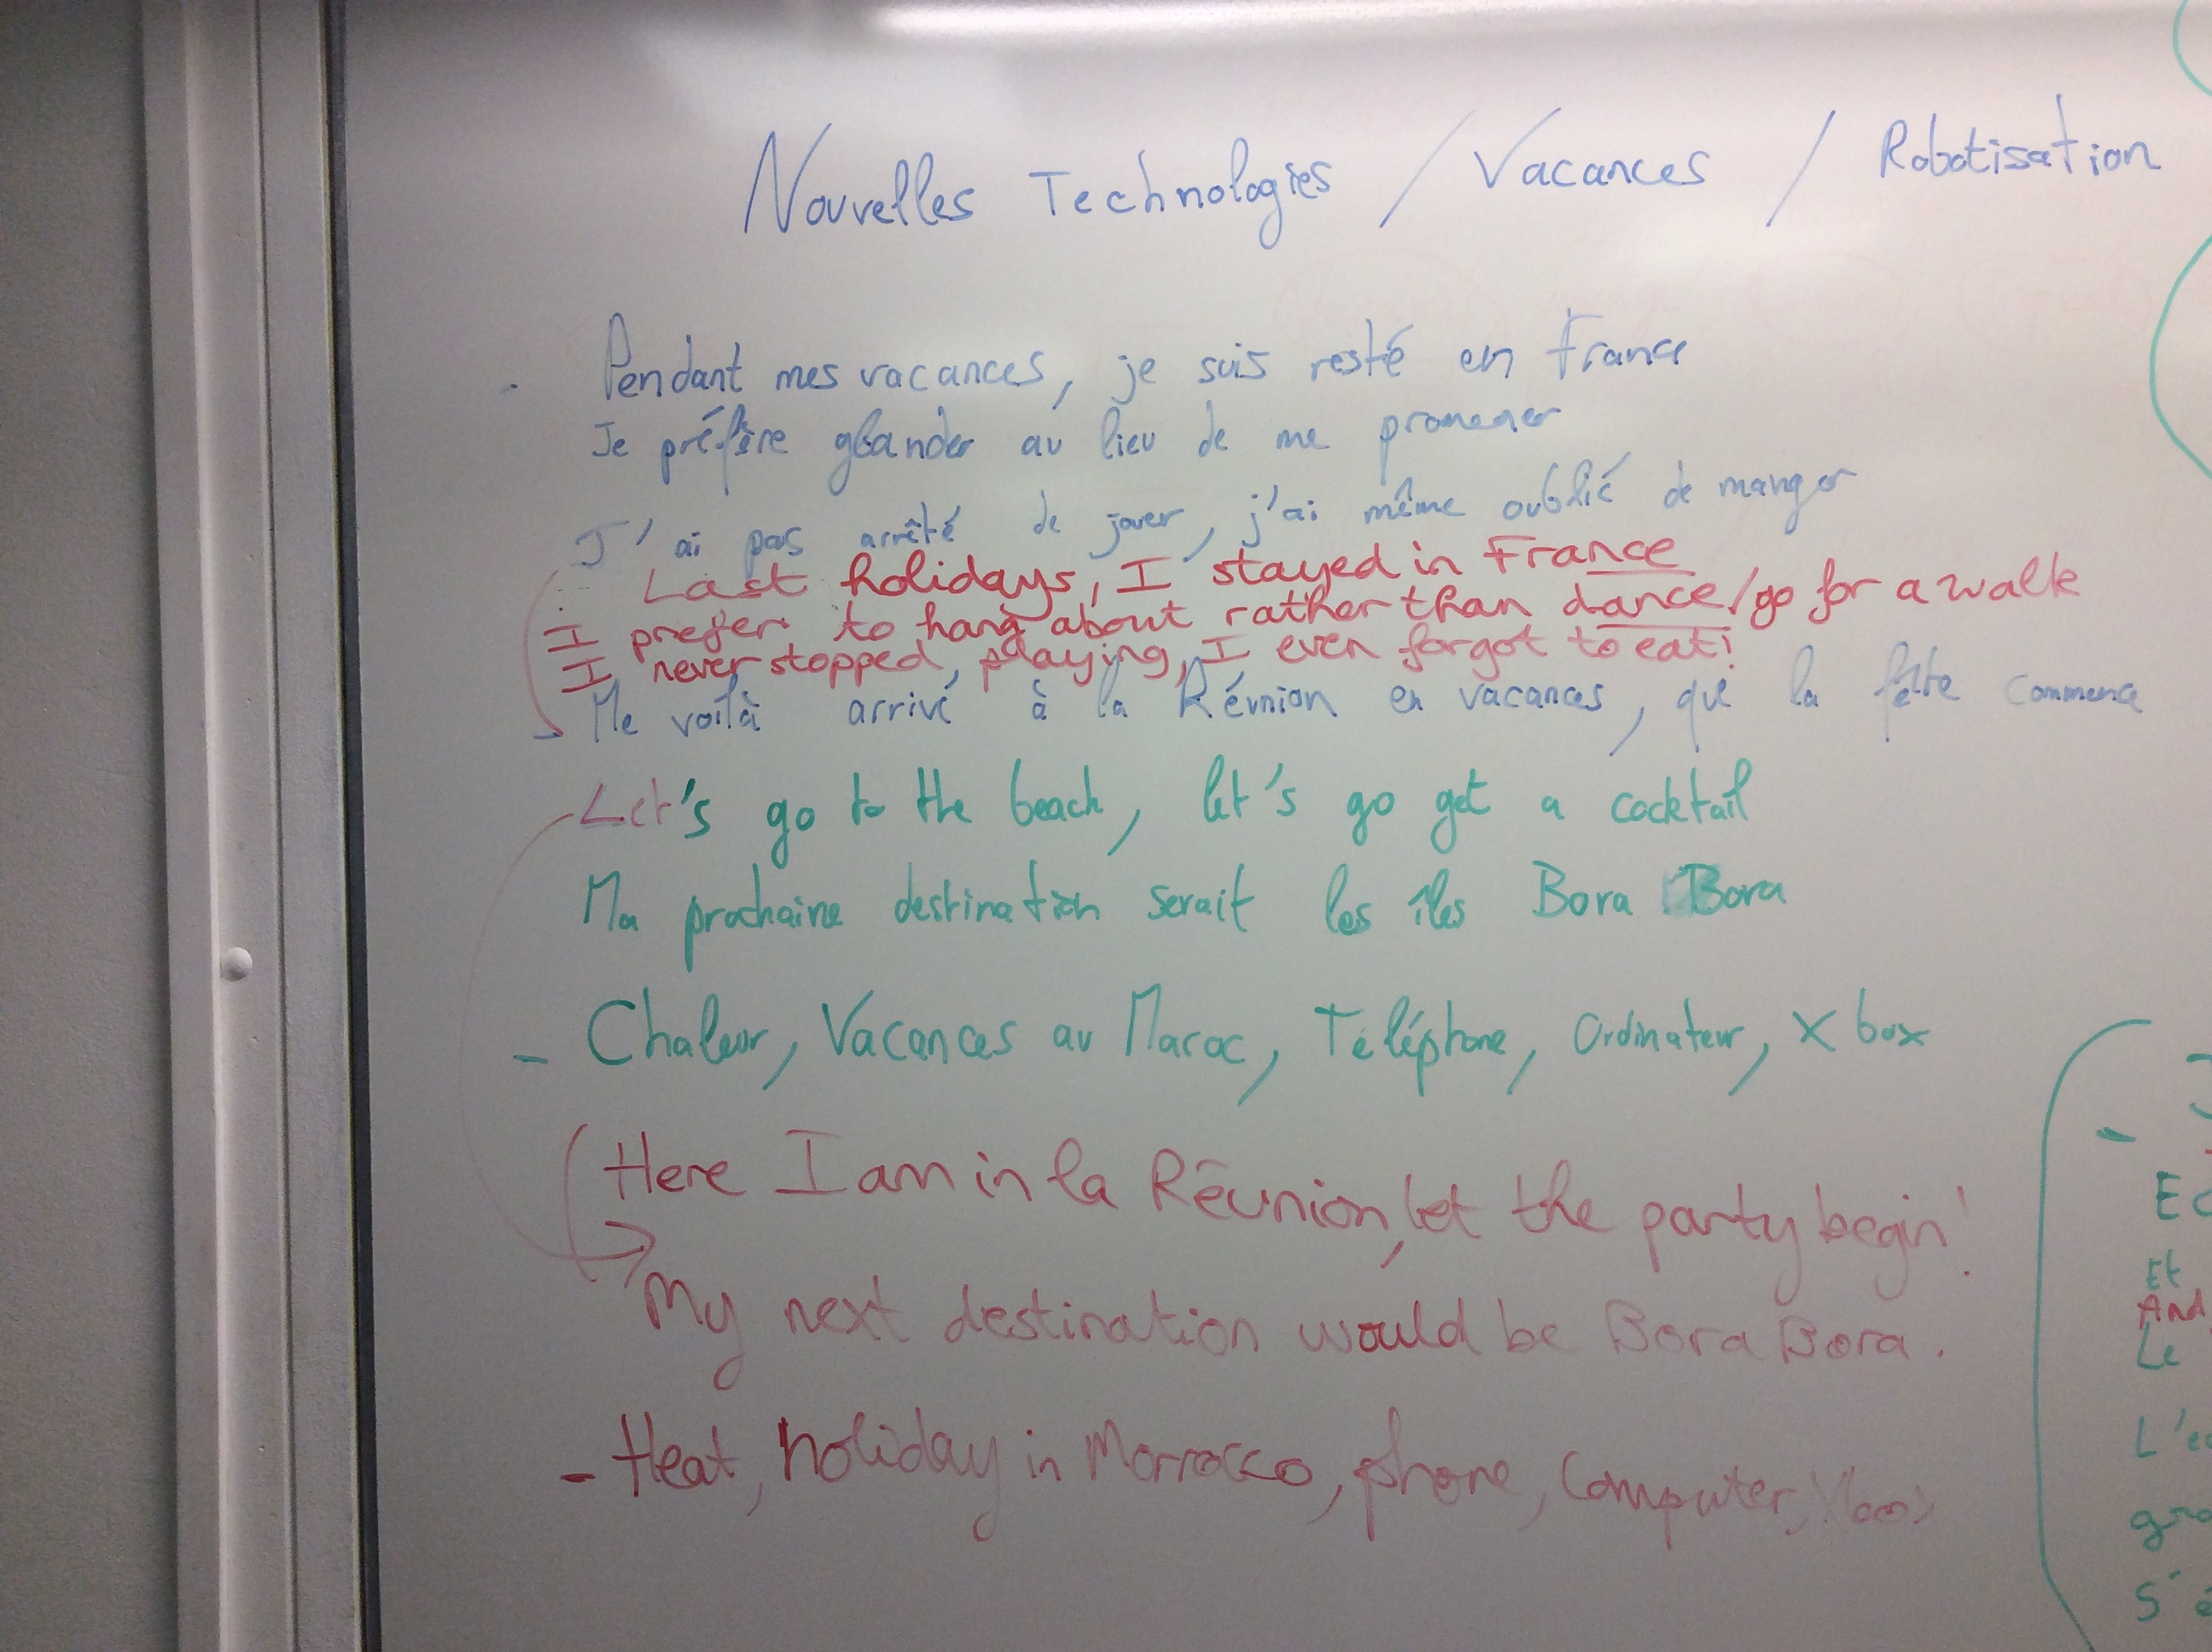 Nouvelles Technologies / Vacances / Robotisation
. Pendant mes vacances, je suis resté en France
Je préfère glander au lieu de me promener
J'ai pas arrêté de jouer, j'ai même oublié de manger
Last holidays, I stayed in France
I prefer to hang about rather than dance/go for a walk
I never stopped playing, I even forgot to eat!
Me voilà arrivé à la Réunion en vacances, que la fête commence
Let's go to the beach, let's go get a cocktail
Ma prochaine destination serait les îles Bora Bora
- Chaleur, Vacances au Maroc, Téléphone, Ordinateur, X box
Here I am in la Réunion, let the party begin!
My next destination would be Bora Bora.
- Heat, holiday in Morrocco, phone, Computer, Xbox
-
Et
And
Le